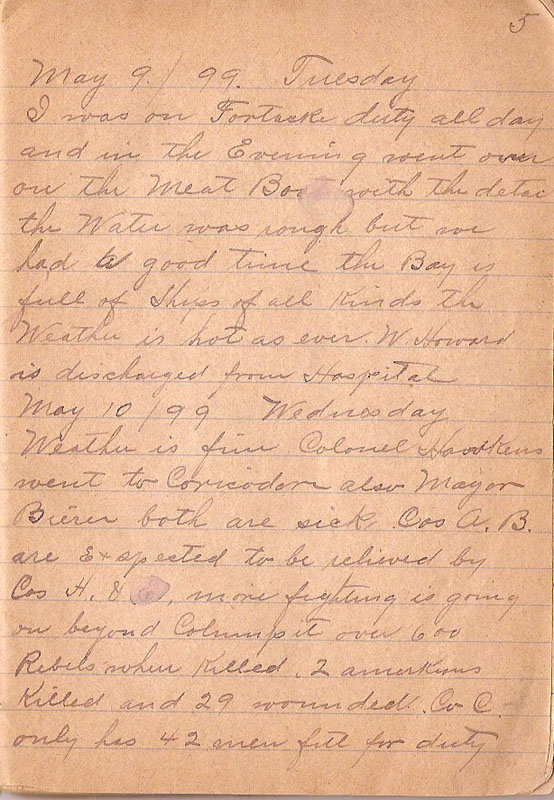 5
May 9./99. Tuesday
I was on Fortucke duty all day
and in the Evening went over
on the Meat Boat with the detai
the Water was rough but we
had a good time the Bay is
full of Ships of all Kinds the
Weather is hot as ever. W. Howard
is discharged from Hospital
May 10/99 Wednesday
Weather is fine Colonel Hawkens
went to Coricodore also Mayor
Bierer both are sick. Cos A. B.
are Exspected to be relived by
Cos H. &, more fighting is going
on beyond Columpit over 600
Rebels wher Killed. 2 amerkuns
Killed and 29 wounded. Co C.
only has 42 men fitt for duty